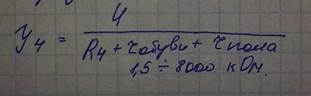 U
У₄ = ―――
R₄ + τобуви + τпола
1,5 ÷ 8000 кОм.